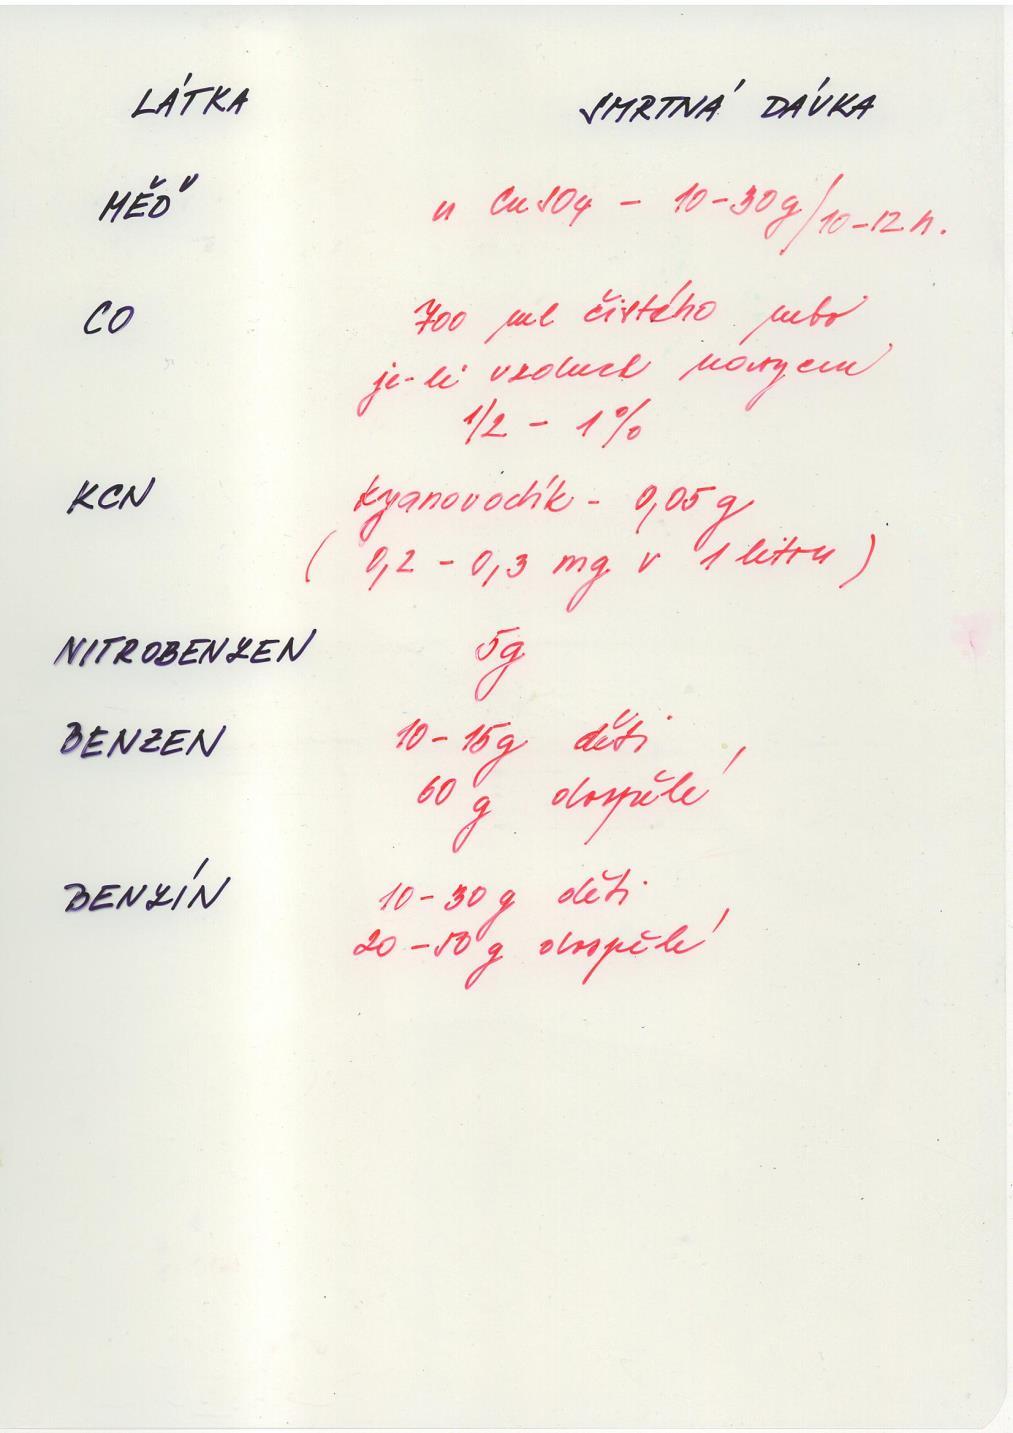 LÁTKA SMRTNÁ DÁVKA
MĚĎ u CuSO4 - 10-30g/10-12 h.
CO 700 ml čistého nebo
je-li vzduch nasycen
1/2 - 1%
KCN kyanovodík - 0,05 g
( 0,2 - 0,3 mg v 1 litru )
NITROBENZEN 5g
BENZEN 10-15g děti
60 g dospělé
BENZÍN 10-30 g děti
20-50 g dospělé